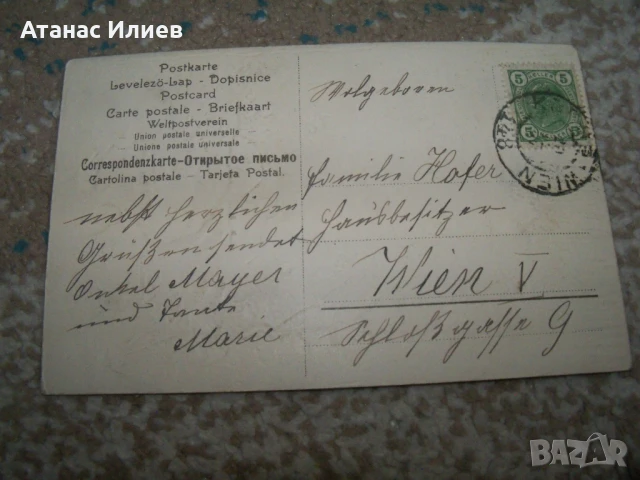 Атанас Илиев
Postkarte
Levelező-Lap - Dopisnice
Postcard
Carte postale - Briefkaart
Weltpostverein
Union postale universelle
Unione postale universale
Correspondenzkarte-Открытое письмо
Cartolina postale - Tarjeta Postal.
nebst herzlichen
Grüßen sendet
Onkel Mayer
und Tante
Marie
Wolgeboren
Familie Hofer
Hausbesitzer
Wien V
Schloßgasse 9
5 HELLER 5
5 5
WIEN
BAZAR